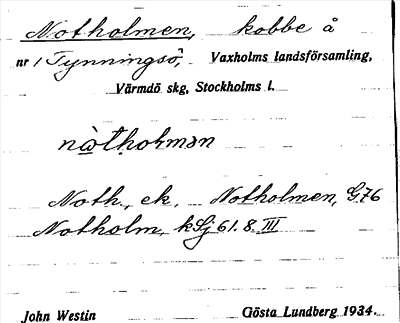 Notholmen, kobbe å
nr 1 Tynningsö, Vaxholms landsförsamling,
Värmdö skg, Stockholms l.
Noth., ek. Notholmen, G76
Notholm, kSj 61. 8. III
John Westin Gösta Lundberg 1934.